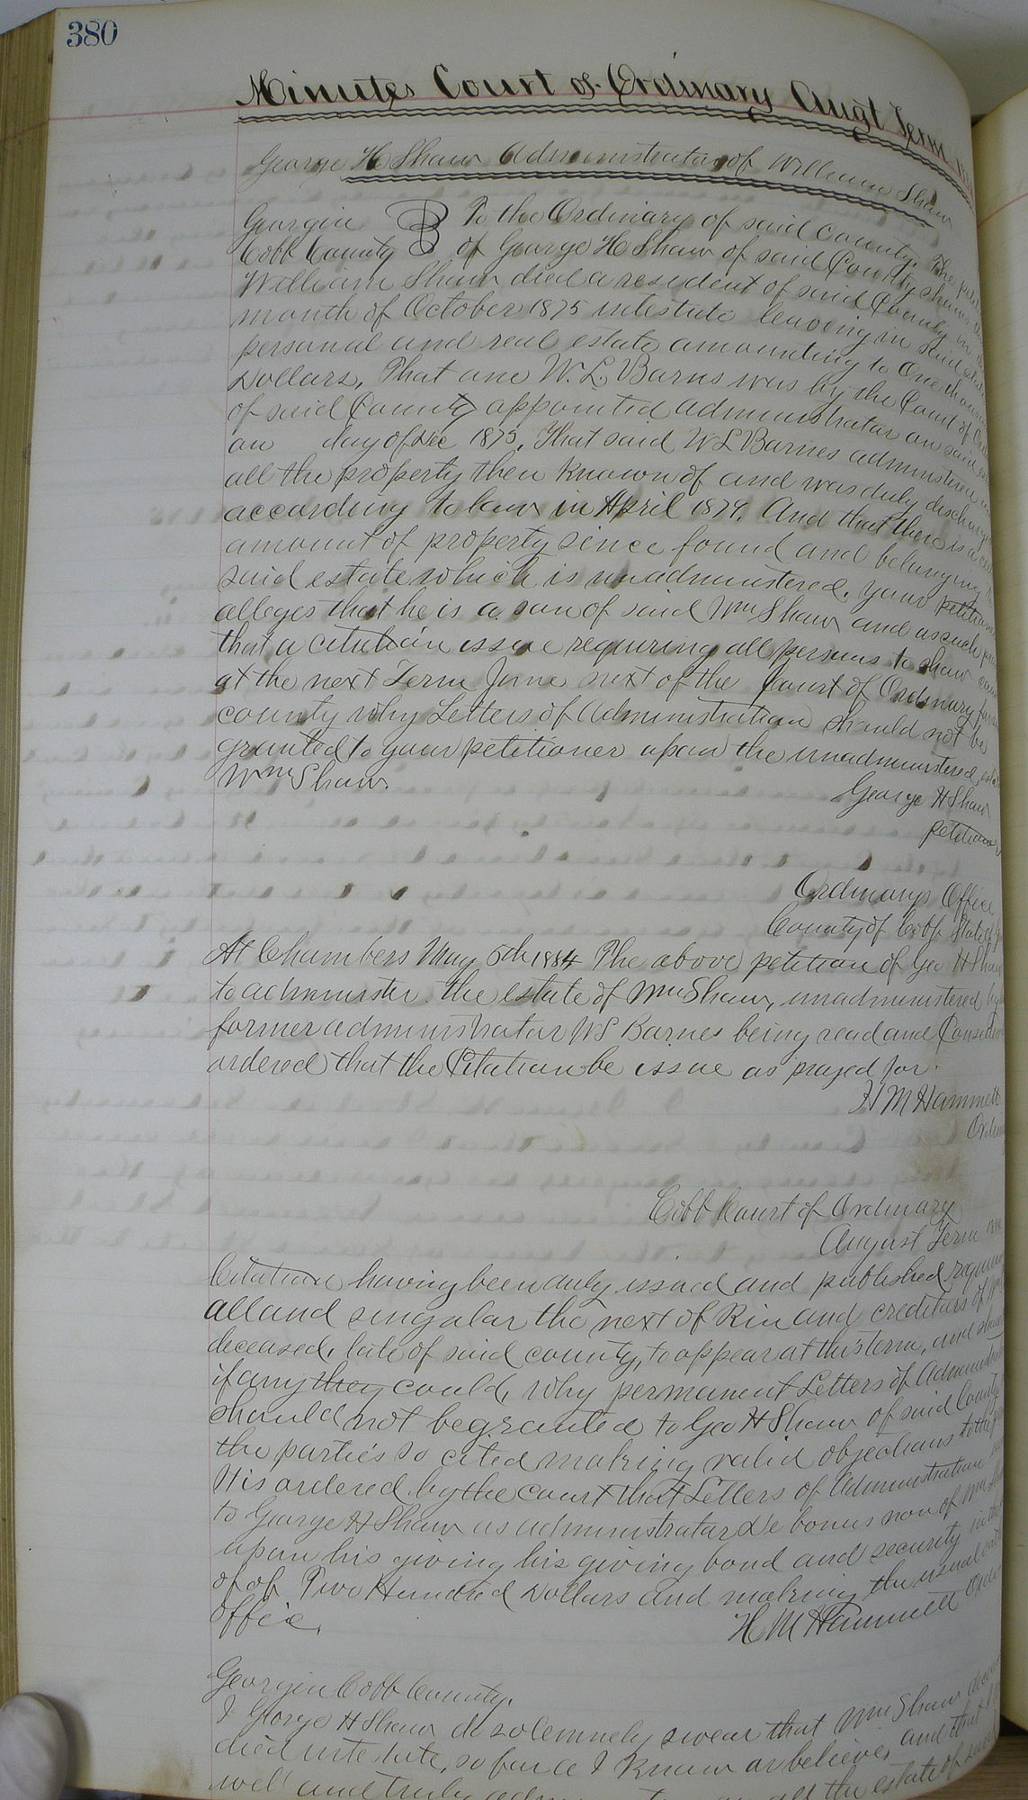 380
Minutes Court of Ordinary Augt Term
George H Shaw Administrator of William Shaw
Georgia To the Ordinary of said County. The
Cobb County of George H Shaw of said County shows
William Shaw died a resident of said County in
month of October 1875 intestate leaving in said
personal and real estate amounting to One
Dollars, That one W. L. Barns was by the Court of
of said County appointed administrator on said
on day of Dec 1875, That said W L Barnes administered
all the property then known of and was duly
according to law in April 1879. And that there is a
amount of property since found and belonging
said estate which is unadministered. Your
alleges that he is a son of said Wm Shaw and as such
that a citation issue requiring all persons to show
at the next Term June next of the Court of Ordinary
county why Letters of Administration should not be
granted to your petitioner upon the unadministered
Wm Shaw.
George H Shaw
petitioner
Ordinarys Office
County of Cobb State
At Chambers May 5th 1884 The above petition of Geo H Shaw
to administer the estate of Wm Shaw, unadministered by
former administrator W S Barnes being read and
ordered that the Citation be issue as prayed for.
H M Hammett
Cobb Court of Ordinary
August Term
Citation having been duly issued and published
all and singular the next of Kin and creditors of
deceased, late of said county, to appear at this term, and
if any they could, why permanent Letters of
should not be granted to Geo H Shaw of said County
the parties so cited making valid objections to the
It is ordered by the court that Letters of Administration
to George H Shaw as administrator De bonus non of Wm
upon his giving his giving bond and security in the
of of Two Hundred Dollars and making the usual
office.
H M Hammett
Georgia Cobb County.
I Glorge H Shaw do solemnely swear that Wm Shaw
died intestate, so far as I know or believe, and that
well and truly all the estate of